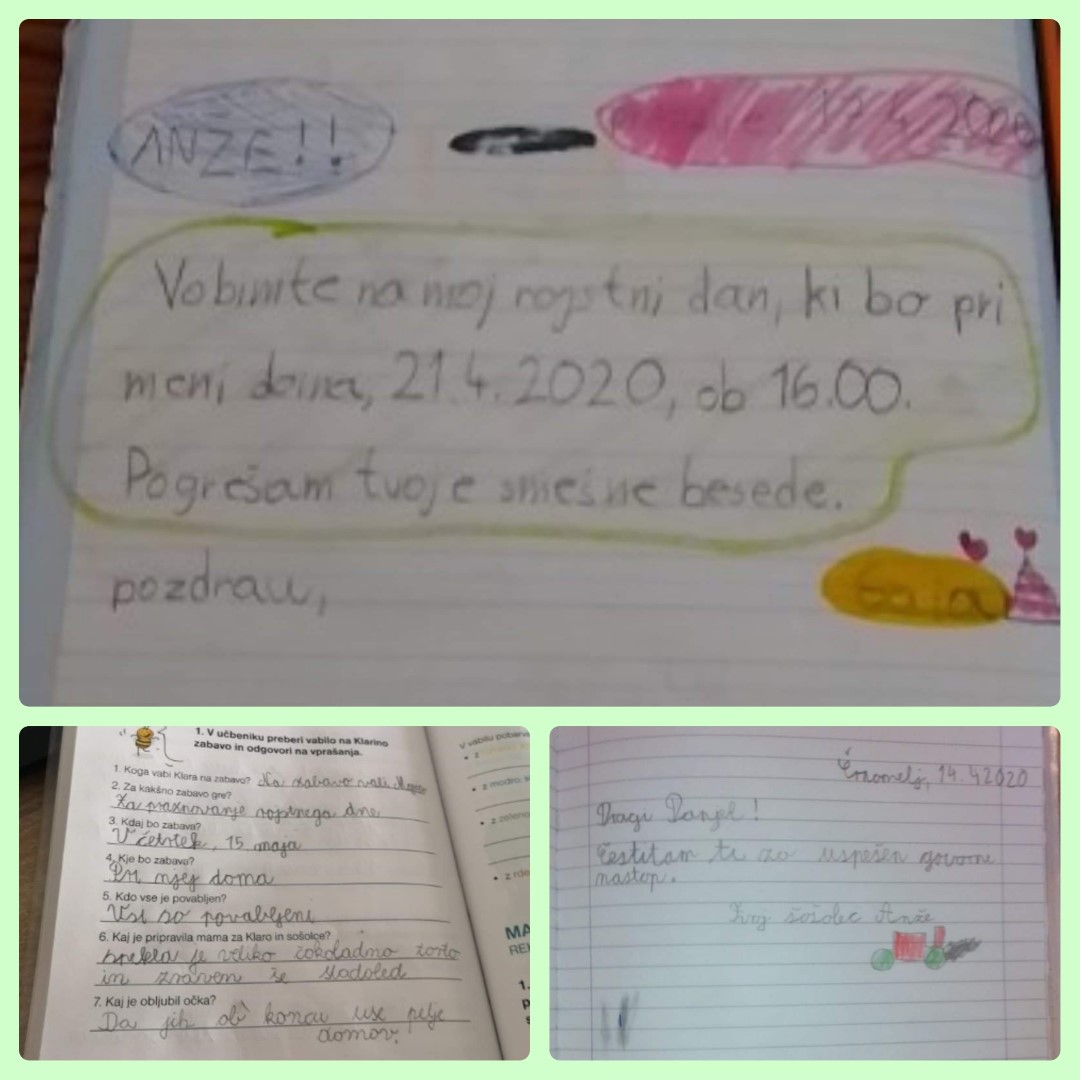 ANŽE!!
17.4.2020
Vabimte na moj rojstni dan, ki bo pri
meni doma, 21.4.2020, ob 16.00.
Pogrešam tvoje smešne besede.
pozdrav,
Gaja
1. V učbeniku preberi vabilo na Klarino
zabavo in odgovori na vprašanja.
1. Koga vabi Klara na zabavo? Na zabavo vabi
2. Za kakšno zabavo gre?
Za praznovanje rojstnega dne
3. Kdaj bo zabava?
V četrtek, 15 maja
4. Kje bo zabava?
Pri njej doma
5. Kdo vse je povabljen?
Vsi so povabljeni
6. Kaj je pripravila mama za Klaro in sošolce?
spekla je veliko čokoladno torto
in zraven še sladoled
7. Kaj je obljubil očka?
Da jih ob koncu vse pelje
domov.
V vabilu pobarva
• z
• z modro,
• z zeleno
• z rde
MA
RE
1.
Črnomelj, 14.4.2020
Dragi Danjel!
Čestitam ti za uspešen govorni
nastop.
Tvoj sošolec Anže